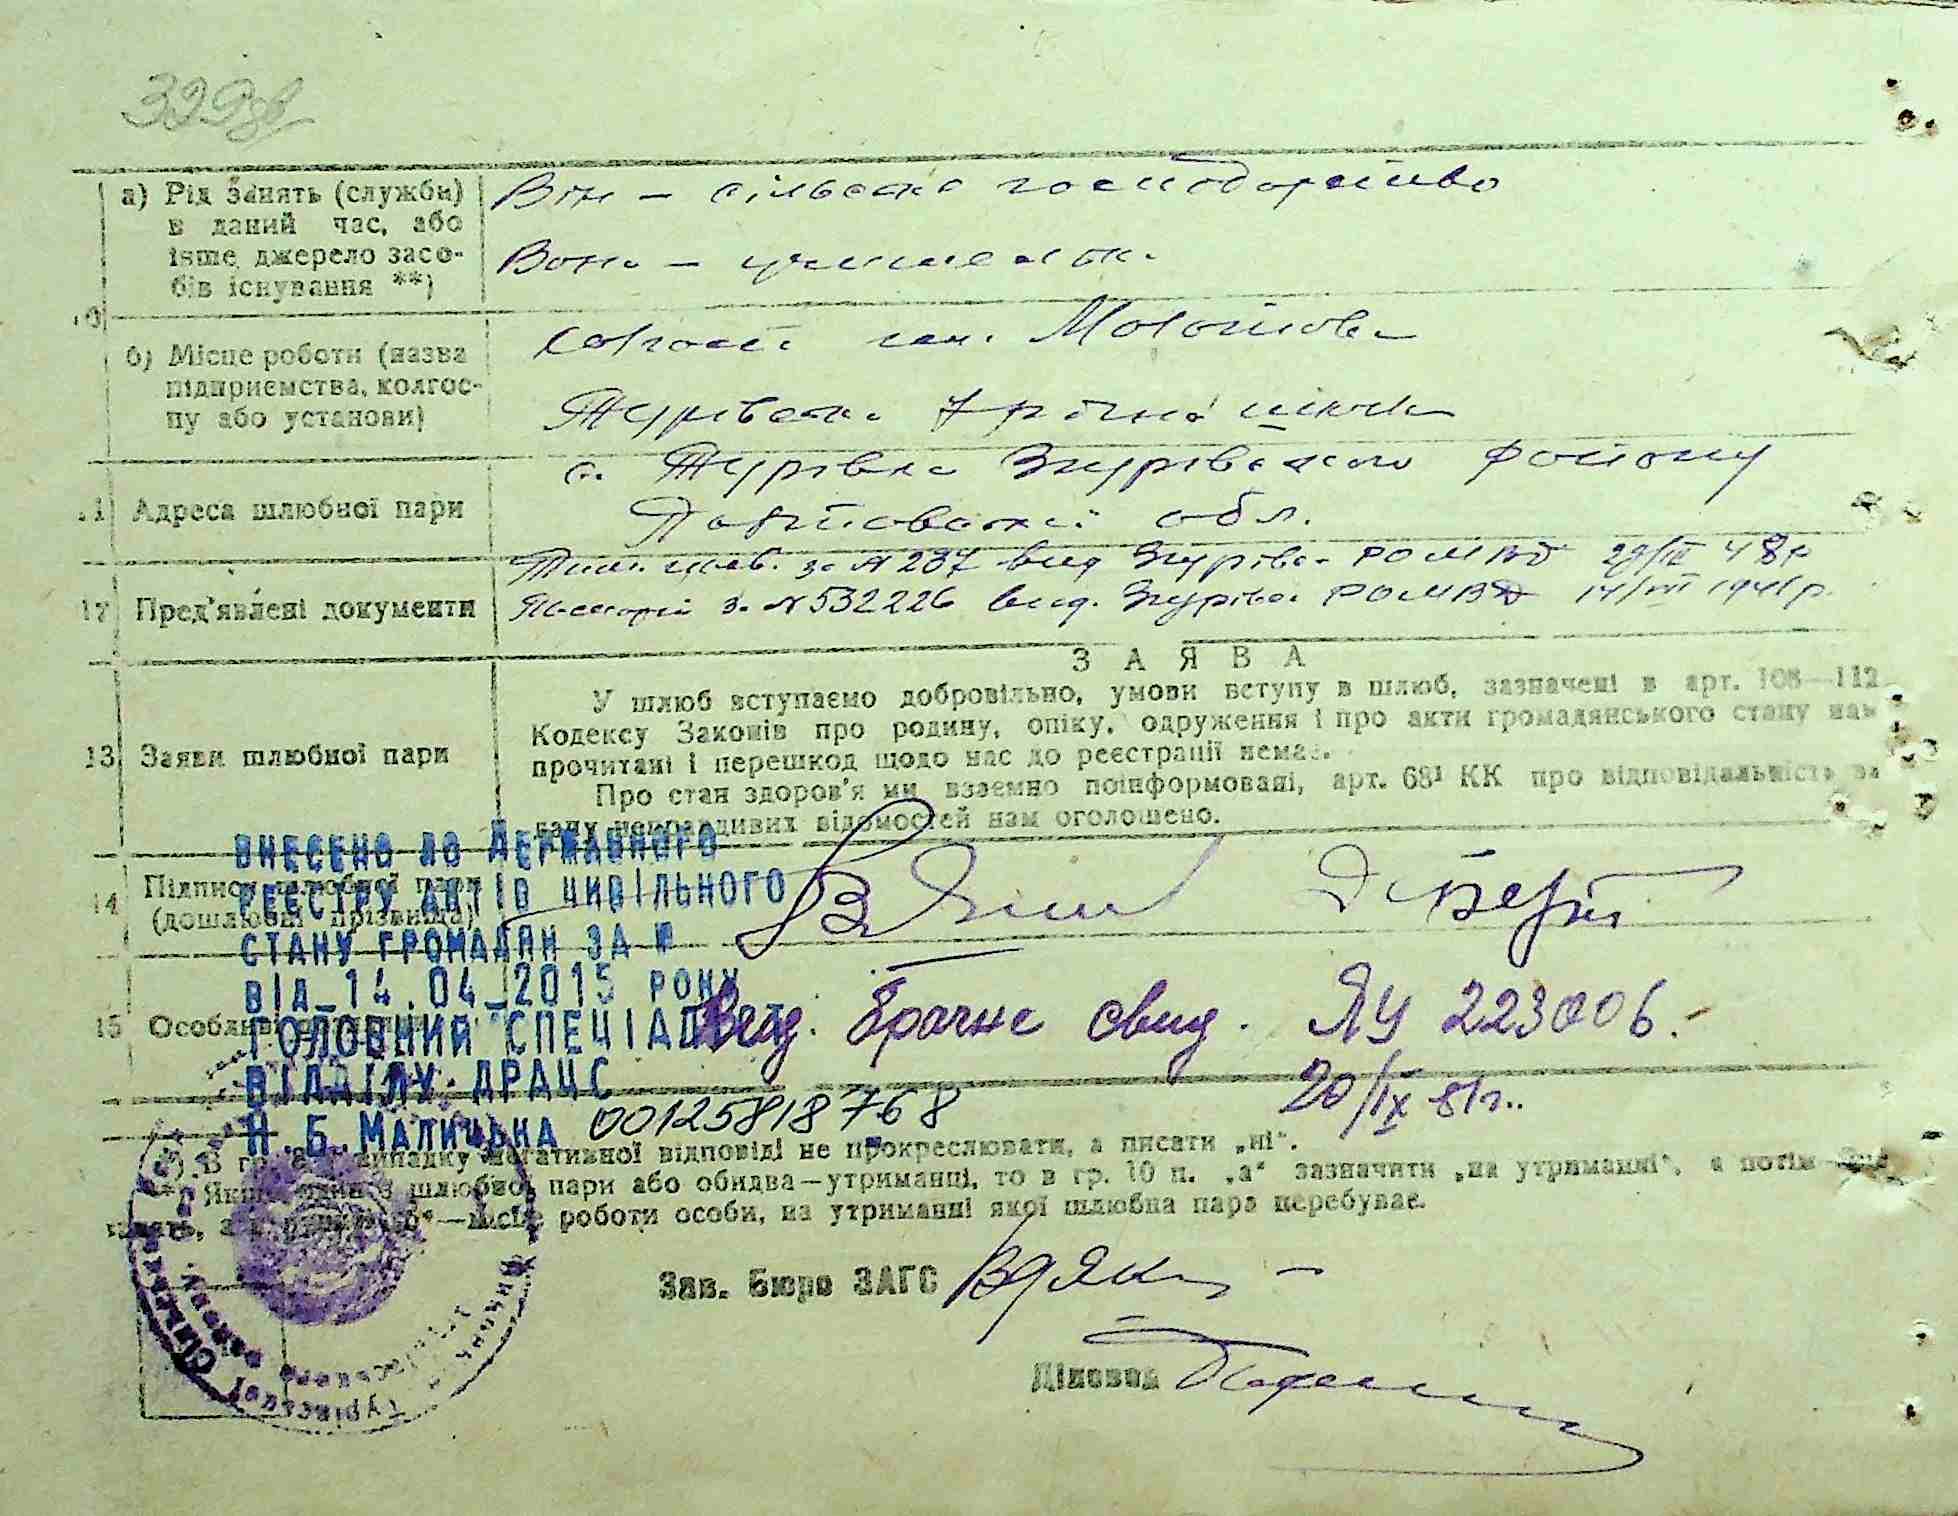 а) Рід занять (служби)
в даний час, або
інше джерело засо-
бів існування **)
Він – сільське господарство
Вона – учителька
б) Місце роботи (назва
підприємства, колгос-
пу або установи)
Колгосп ім. Молотова
Турівська 7 річна школа
11 Адреса шлюбної пари
с. Турівка Згурівського району
Полтавської обл.
12 Пред'явлені документи
Тим. посв. за № 237 вид Згурівс. РОМВД 29/IV 48 р
Паспорт за № 532226 вид. Згурівс. РОМВД 14/VII 1941 р.
13 Заяви шлюбної пари
З А Я В А
У шлюб вступаємо добровільно, умови вступу в шлюб, зазначені в арт. 106—112
Кодексу Законів про родину, опіку, одруження і про акти громадянського стану нам
прочитані і перешкод щодо нас до реєстрації немає.
Про стан здоров'я ми взаємно поінформовані, арт. 68¹ КК про відповідальність за
дачу неправдивих відомостей нам оголошено.
14 Підписи шлюбної пари
(дошлюбні прізвища)
ВНЕСЕНО ДО ДЕРЖАВНОГО
РЕЄСТРУ АКТІВ ЦИВІЛЬНОГО
СТАНУ ГРОМАДЯН ЗА №
ВІД_14.04_2015 РОКУ
ГОЛОВНИЙ СПЕЦІАЛІСТ
ВІДДІЛУ ДРАЦС
Н.Б.МАЛИЦЬКА 00125818768
15 Особливі
Выд. брачне свид. ЯУ 223006.
20/IX 81 г.
*) В гр. випадку негативної відповіді не прокреслювати, а писати „ні".
**) Якщо один з шлюбної пари або обидва—утриманці, то в гр. 10 п. „а" зазначити „на утриманні", а потім
—місце роботи особи, на утриманні якої шлюбна пара перебуває.
Зав. Бюро ЗАГС
Діловод